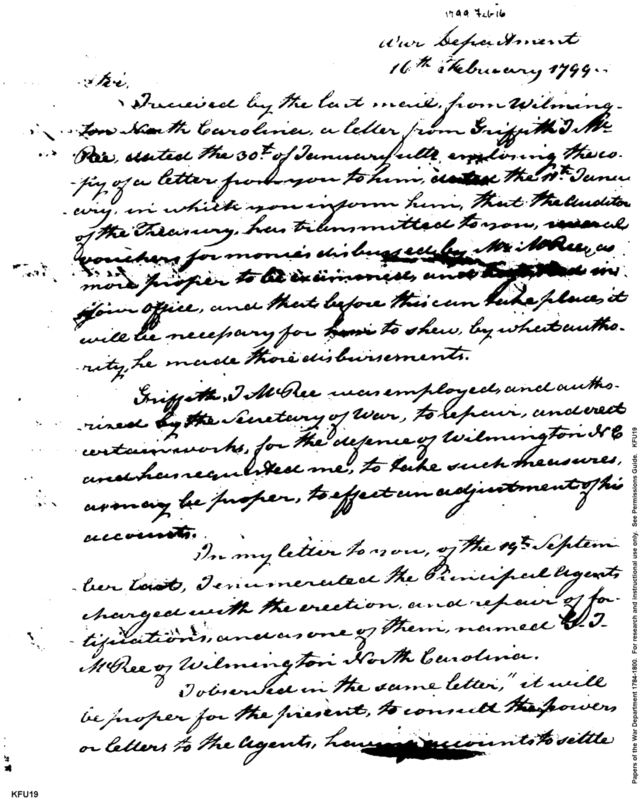 1799 Feb 16
War Department
16th February 1799.
Sir,
I received by the last mail, from Wilming-
ton North Carolina, a letter from Griffith J. Mc
Ree, dated the 30th of January ulto, enclosing the co-
py of a letter from you to him, dated the 11th Janu
ary, in which you inform him, that the Auditor
of the Treasury, has transmitted to you, several
vouchers for monies disbursed by Mr. McRee, as
more proper to be examined, and in
your office, and that before this can take place, it
will be necessary for him to shew, by what autho-
rity, he made those disbursements.
Griffith, J McRee was employed, and autho-
rized by the Secretary of War, to repair, and erect
certain works, for the defence of Wilmington N C
and has requested me, to take such measures,
as may be proper, to effect an adjustment of his
accounts.
In my letter to you, of the 19th Septem
ber last, I enumerated the Principal Agents
charged with the erection, and repair of for-
tifications, and as one of them, named G. J.
McRee of Wilmington North Carolina.
I observed in the same letter, "it will
be proper for the present, to consult the powers
or letters to the Agents, having accounts to settle
KFU19
Papers of the War Department 1784-1800. For research and instructional use only. See Permissions Guide. KFU19